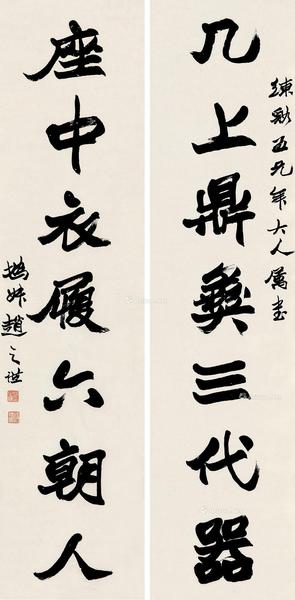 几上鼎彝三代器
座中衣履六朝人
五兄年大人属书
赵之世